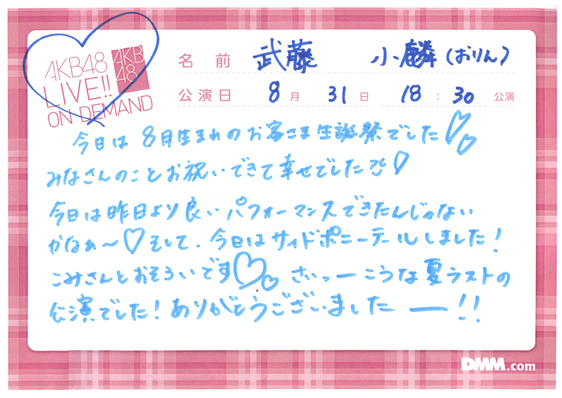 AKB48
LIVE!!
ON DEMAND
AKB
48
名前 武藤 小麟(おりん)
公演日 8月 31日 18:30 公演
今日は8月生まれのお客さま生誕祭でした♡♡
みなさんのことお祝いできて幸せでした♡
今日は昨日より良いパフォーマンスできたんじゃない
かなぁ〜♡そして、今日はサイドポニーテールしました!
こみさんとおそろいです♡♡ さいっーこうな夏ラストの
公演でした!ありがとうございましたー!!
DMM.com